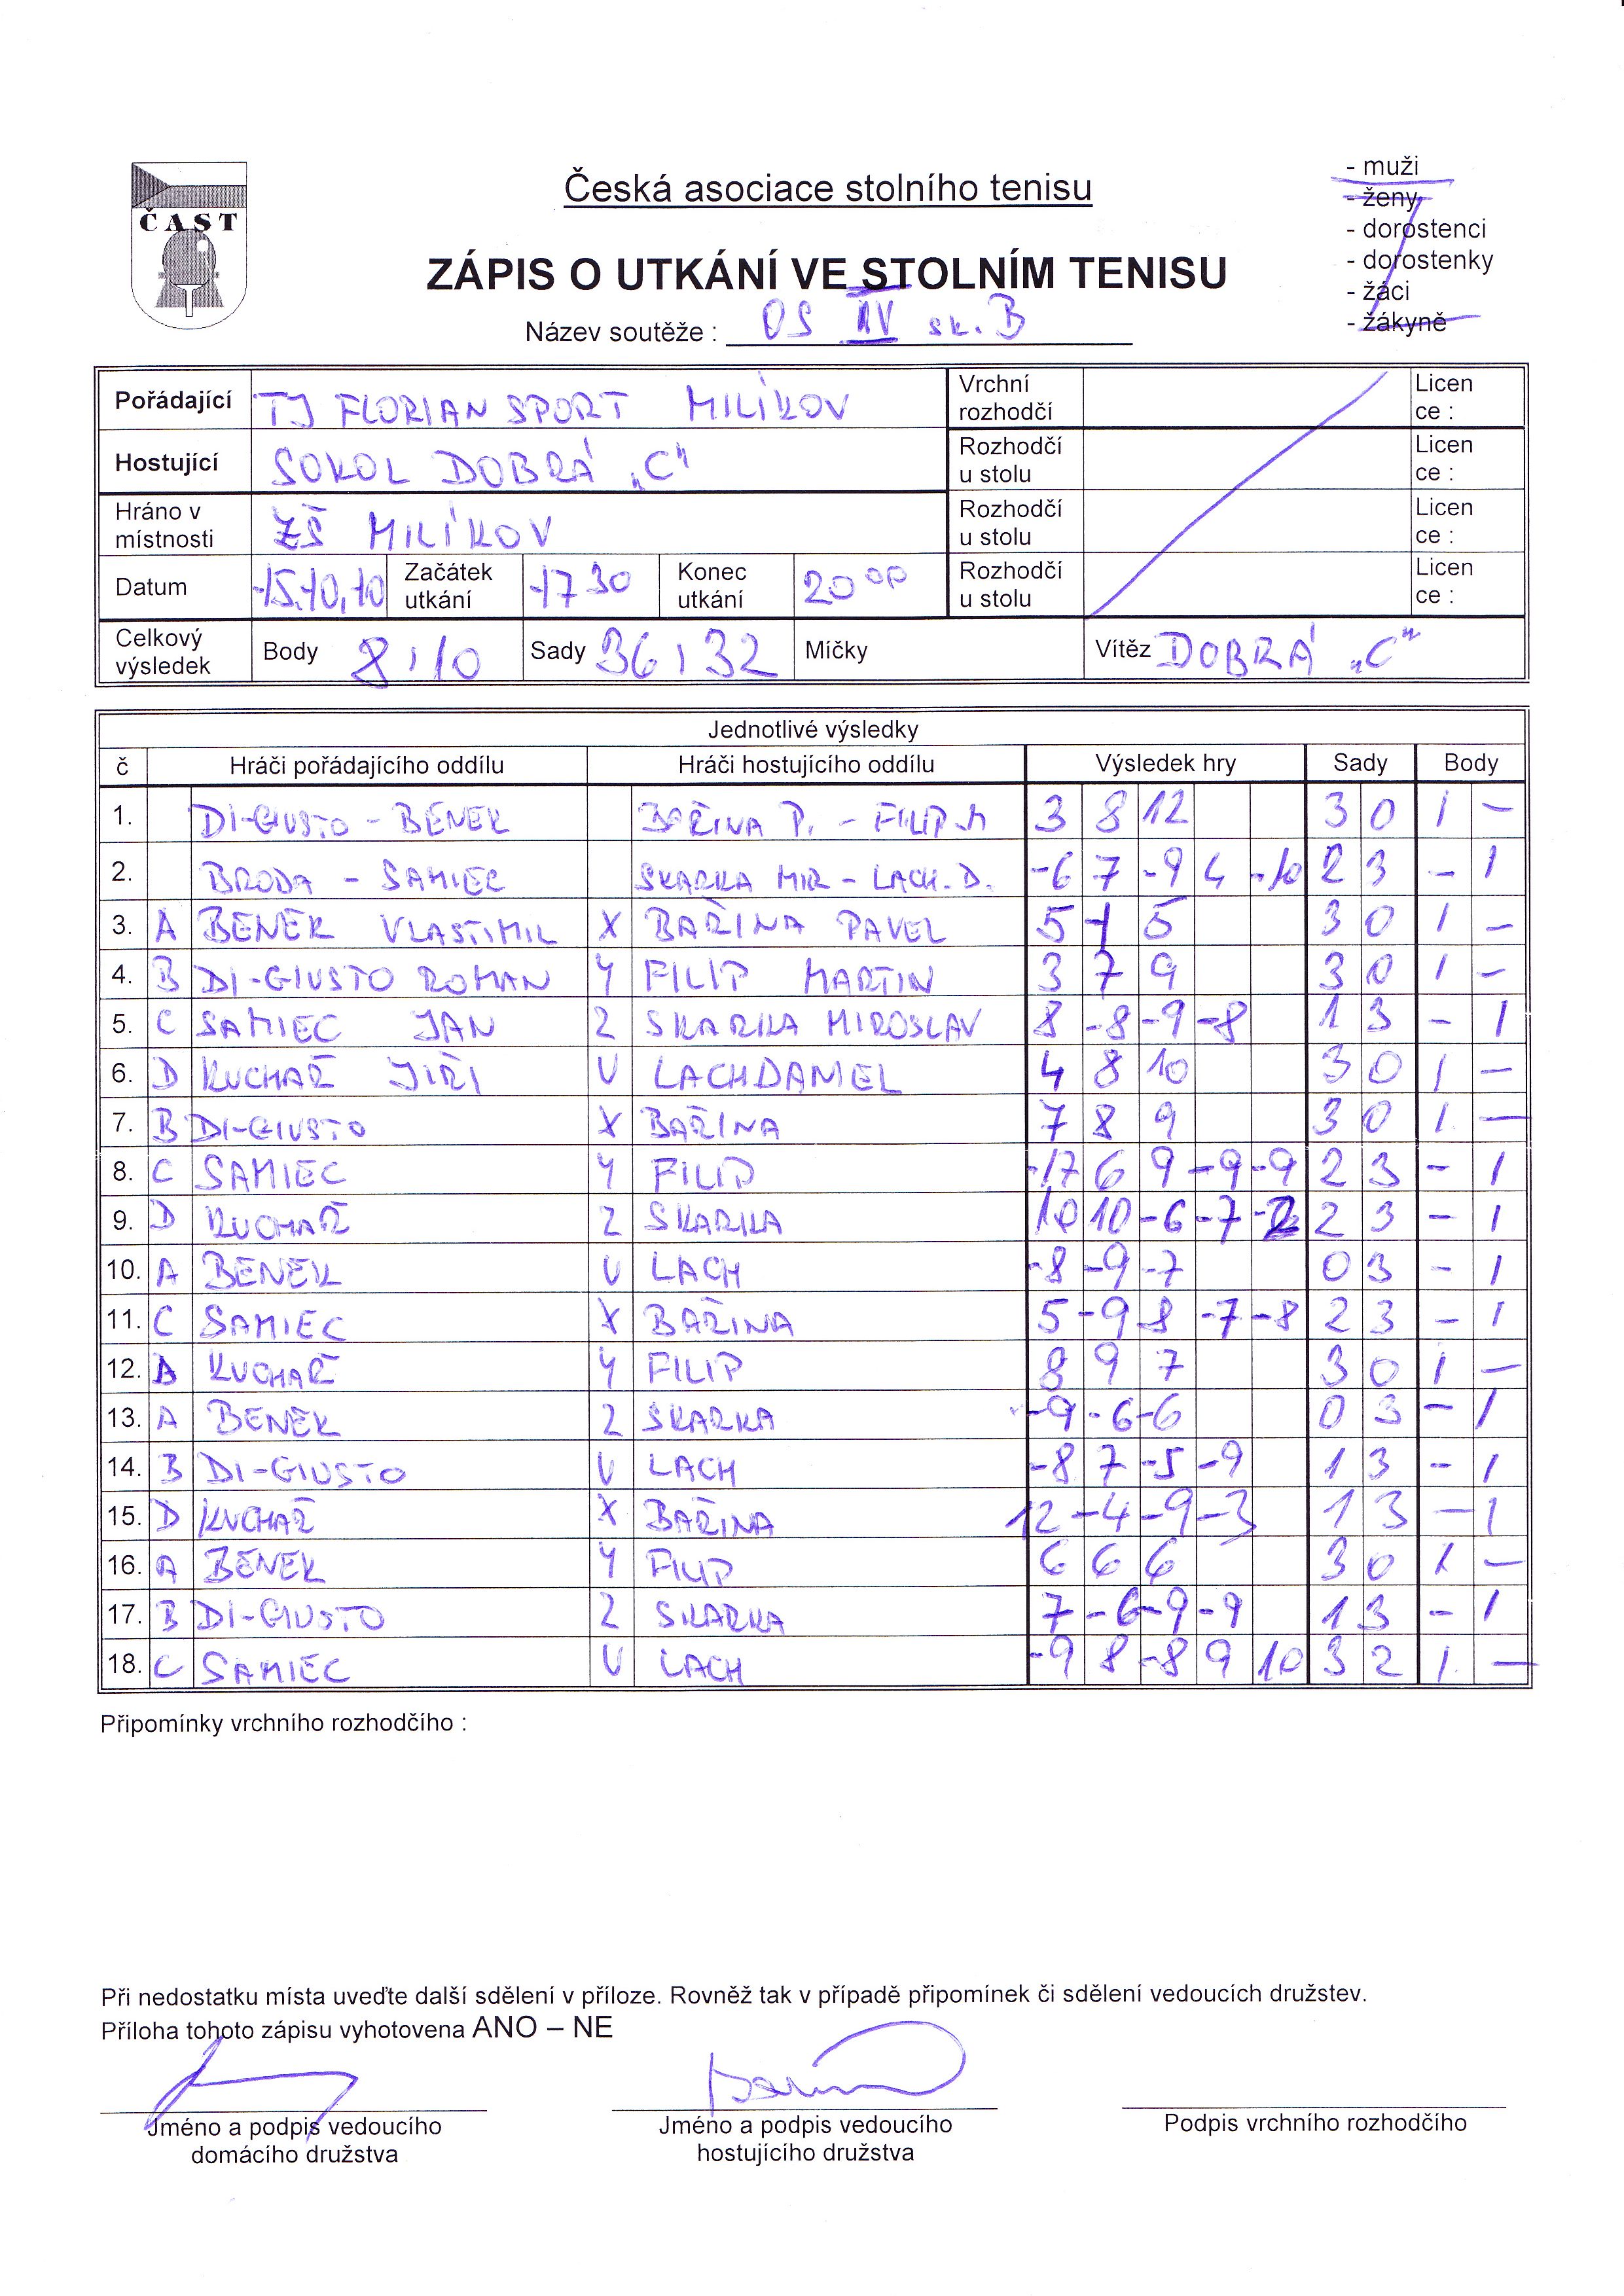 ČAST
Česká asociace stolního tenisu
ZÁPIS O UTKÁNÍ VE STOLNÍM TENISU
Název soutěže : OS IV sk. B
- muži
- ženy
- dorostenci
- dorostenky
- žáci
- žákyně
Pořádající TJ FLORIAN SPORT MILÍKOV Vrchní rozhodčí Licen ce :
Hostující SOKOL DOBRÁ „C" Rozhodčí u stolu Licen ce :
Hráno v místnosti ZŠ MILÍKOV Rozhodčí u stolu Licen ce :
Datum 15.10.10 Začátek utkání 17 30 Konec utkání 20 00 Rozhodčí u stolu Licen ce :
Celkový výsledek Body 8 : 10 Sady 36 : 32 Míčky Vítěz DOBRÁ „C"
Jednotlivé výsledky
č Hráči pořádajícího oddílu Hráči hostujícího oddílu Výsledek hry Sady Body
1. DI-GIUSTO - BENEK BAŘINA P. - FILIP M 3 8 12 3 0 1 -
2. BRODA - SAMIEC SKARKA MIR - LACH. D. -6 7 -9 4 -10 2 3 - 1
3. A BENEK VLASTIMIL X BAŘINA PAVEL 5 1 5 3 0 1 -
4. B DI-GIUSTO ROMAN Y FILIP MARTIN 3 7 9 3 0 1 -
5. C SAMIEC JAN Z SKARKA MIROSLAV 8 -8 -9 -8 1 3 - 1
6. D KUCHAŘ JIŘI U LACH DANIEL 4 8 10 3 0 1 -
7. B DI-GIUSTO X BAŘINA 7 8 9 3 0 1. -
8. C SAMIEC Y FILIP -17 6 9 -9 -9 2 3 - 1
9. D KUCHAŘ Z SKARKA 10 10 -6 -7 -2 2 3 - 1
10. A BENEK U LACH -8 -9 -7 0 3 - 1
11. C SAMIEC X BAŘINA 5 -9 8 -7 -8 2 3 - 1
12. D KUCHAŘ Y FILIP 8 9 7 3 0 1 -
13. A BENEK Z SKARKA -9 -6 -6 0 3 - 1
14. B DI-GIUSTO U LACH -8 7 -5 -9 1 3 - 1
15. D KUCHAŘ X BAŘINA 12 -4 -9 -3 1 3 - 1
16. A BENEK Y FILIP 6 6 6 3 0 1 -
17. B DI-GIUSTO Z SKARKA 7 -6 -9 -9 1 3 - 1
18. C SAMIEC U LACH -9 8 -8 9 10 3 2 1. -
Připomínky vrchního rozhodčího :
Při nedostatku místa uveďte další sdělení v příloze. Rovněž tak v případě připomínek či sdělení vedoucích družstev.
Příloha tohoto zápisu vyhotovena ANO – NE
Jméno a podpis vedoucího domácího družstva
Jméno a podpis vedoucího hostujícího družstva
Podpis vrchního rozhodčího